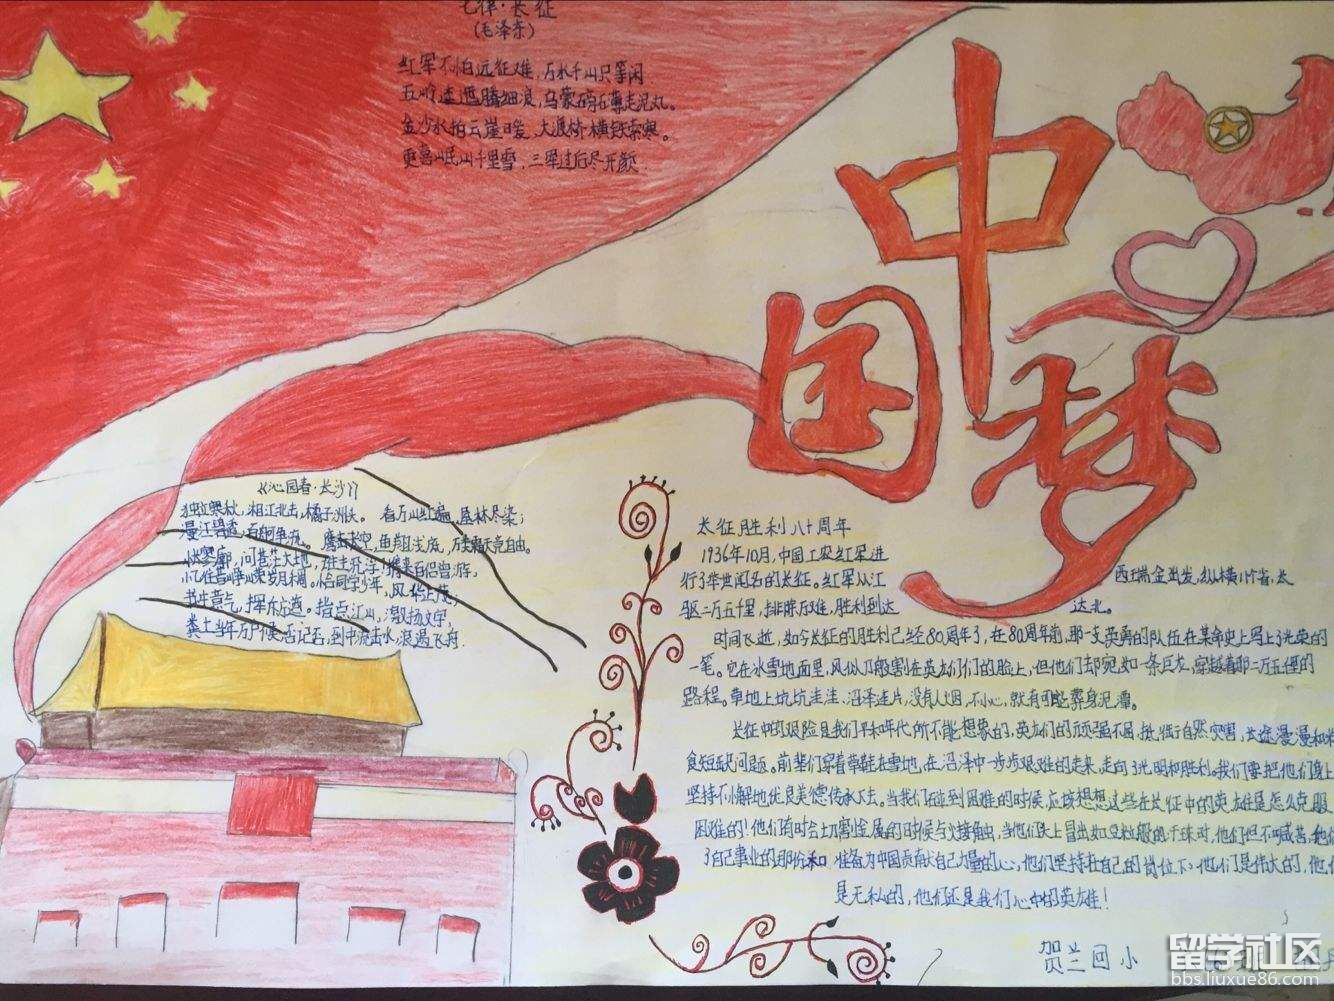 七律·长征
(毛泽东)
红军不怕远征难,万水千山只等闲
五岭逶迤腾细浪,乌蒙磅礴走泥丸。
金沙水拍云崖暖,大渡桥横铁索寒。
更喜岷山千里雪,三军过后尽开颜.
中
国
梦
《沁园春·长沙》
独立寒秋,湘江北去,橘子洲头。看万山红遍,层林尽染;
漫江碧透,百舸争流。鹰击长空,鱼翔浅底,万类霜天竞自由。
怅寥廓,问苍茫大地,谁主沉浮?携来百侣曾游,
忆往昔峥嵘岁月稠。恰同学少年,风华正茂;
书生意气,挥斥方遒。指点江山,激扬文字,
粪土当年万户侯。记否,到中流击水,浪遏飞舟
长征胜利八十周年
1936年10月,中国工农红军进
行了举世闻名的长征。红军从江西瑞金出发,纵横11个省,长
驱二万五千里,排除万难,胜利到达 达北。
时间飞逝,如今长征的胜利已经80周年了,在80周年前,那一支英勇的队伍在革命史上写上了光荣的
一笔。它在冰雪地面里,风似刀般割在英雄们的脸上,但他们却宛如一条巨龙,穿越着那二万五俚的
路程。草地上坑坑洼洼,沼泽连片,没有人因,不小心,就有可能葬身泥潭。
长征中的艰险是我们平和年代所不能想象的,英雄们的顽强不屈,抵御自然灾害,长途漫漫和粮
食短缺问题。前辈们穿着草鞋在雪地,在沼泽中一步步艰难的走来,走向了光明和胜利。我们要把他们身上
坚持不懈地优良美德传承下去。当我们在遇到困难的时候,应该想想这些在长征中的英雄是怎么克服
困难的!他们有时会
了自己事业的那份和 准备为中国贡献自己力量的心,他们坚持在自己的岗位下,他们是伟大的,他们
是无私的,他们还是我们心中的英雄!
贺兰回小
留学社区
bbs.liuxue86.com